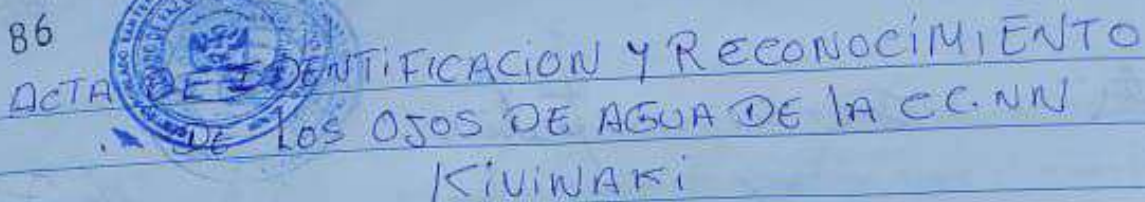 86
ACTA DE IDENTIFICACION Y RECONOCIMIENTO
DE LOS OJOS DE AGUA DE LA CC.NN
KIVINAKI